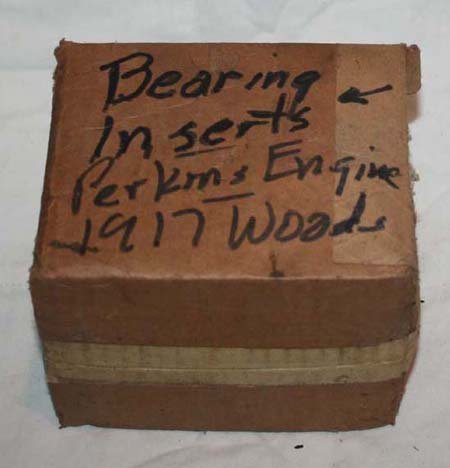 Bearing
Inserts
Perkins Engine
1917 Woods